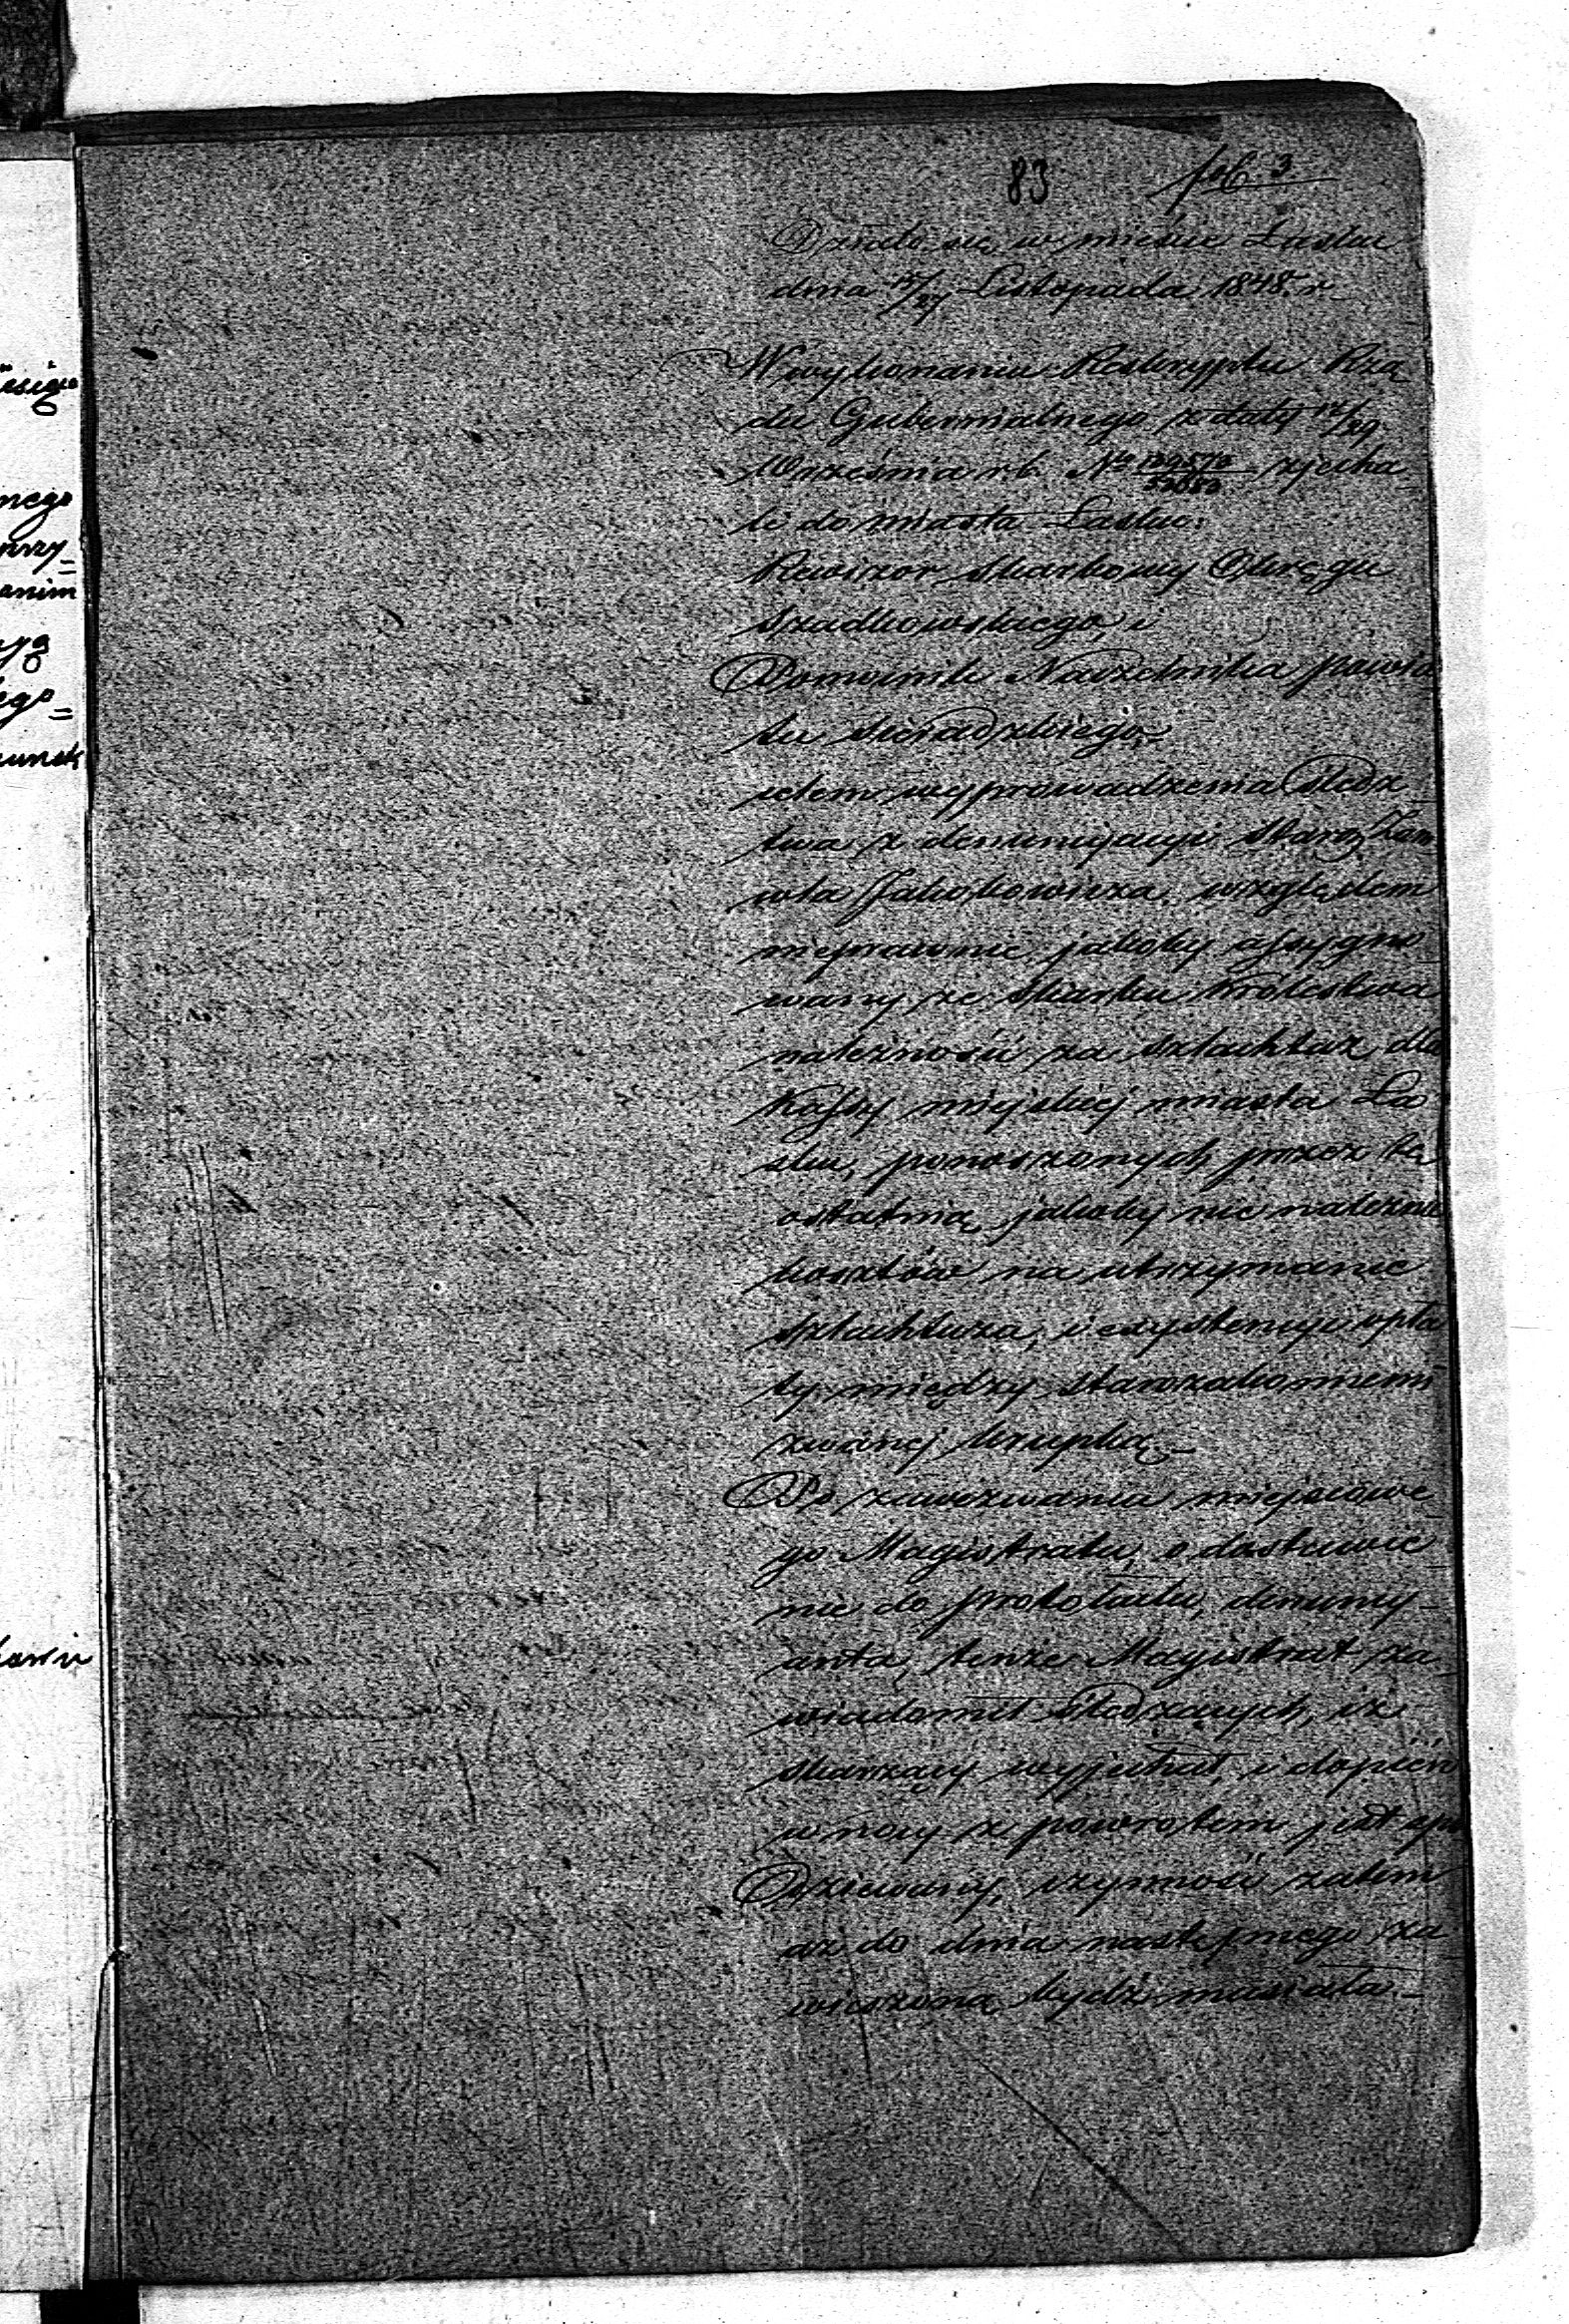 83 fol 3
Działo się w mieście Łasku
dnia 15/27 Listopada 1848 r.
W wykonaniu Reskryptu Rzą
du Gubernialnego z daty 17/29
Września r.b. No zjecha
li do miasta Łasku:
Rewizor Skarbowy Okręgu
Szadkowskiego, i
Pomocnik Naczelnika powia
tu Sieradzkiego
celem wyprowadzenia śledz
twa z denuncyacyi Staroz
Jakubowicza, względem
nieprawnie jakoby assygno
wany ze Skarbu Królestwa
należności za szlachtuz dla
Kassy miejskiej miasta Ła
sku, ponoszonych przez tę
ostatnią jakoby nie należnie
kosztów na utrzymanie
szlachtuza, i exystencyi opła
ty między starozakonnemi
zwanej krupką_
Po zawezwaniu miejscowe
go Magistratu, o dostawie
nie do protokułu, denuncy_
anta, tenże Magistrat za_
wiadomił śledzących, iż
skarzący wyjechał, i dopiéro
w nocy z powrotem jest spo
dziewany, czynność zatem
aż do dnia następnego za
wieszoną bydź musiała._
ięcego
nego
przy=
anim
ego=
unek